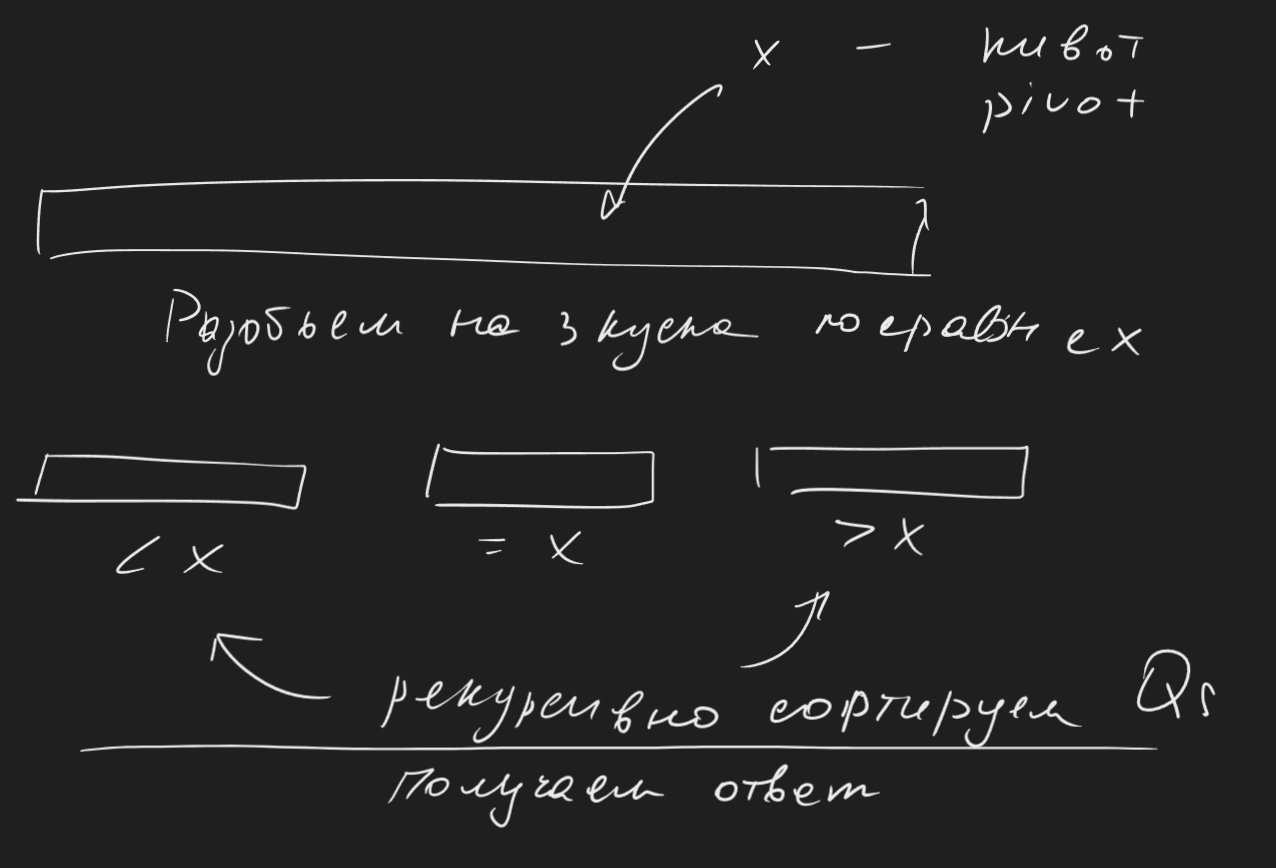 x - пивот
pivot
Разобьем на 3 куска по сравн с x
< x
= x
> x
рекурсивно сортируем Qs
Получаем ответ